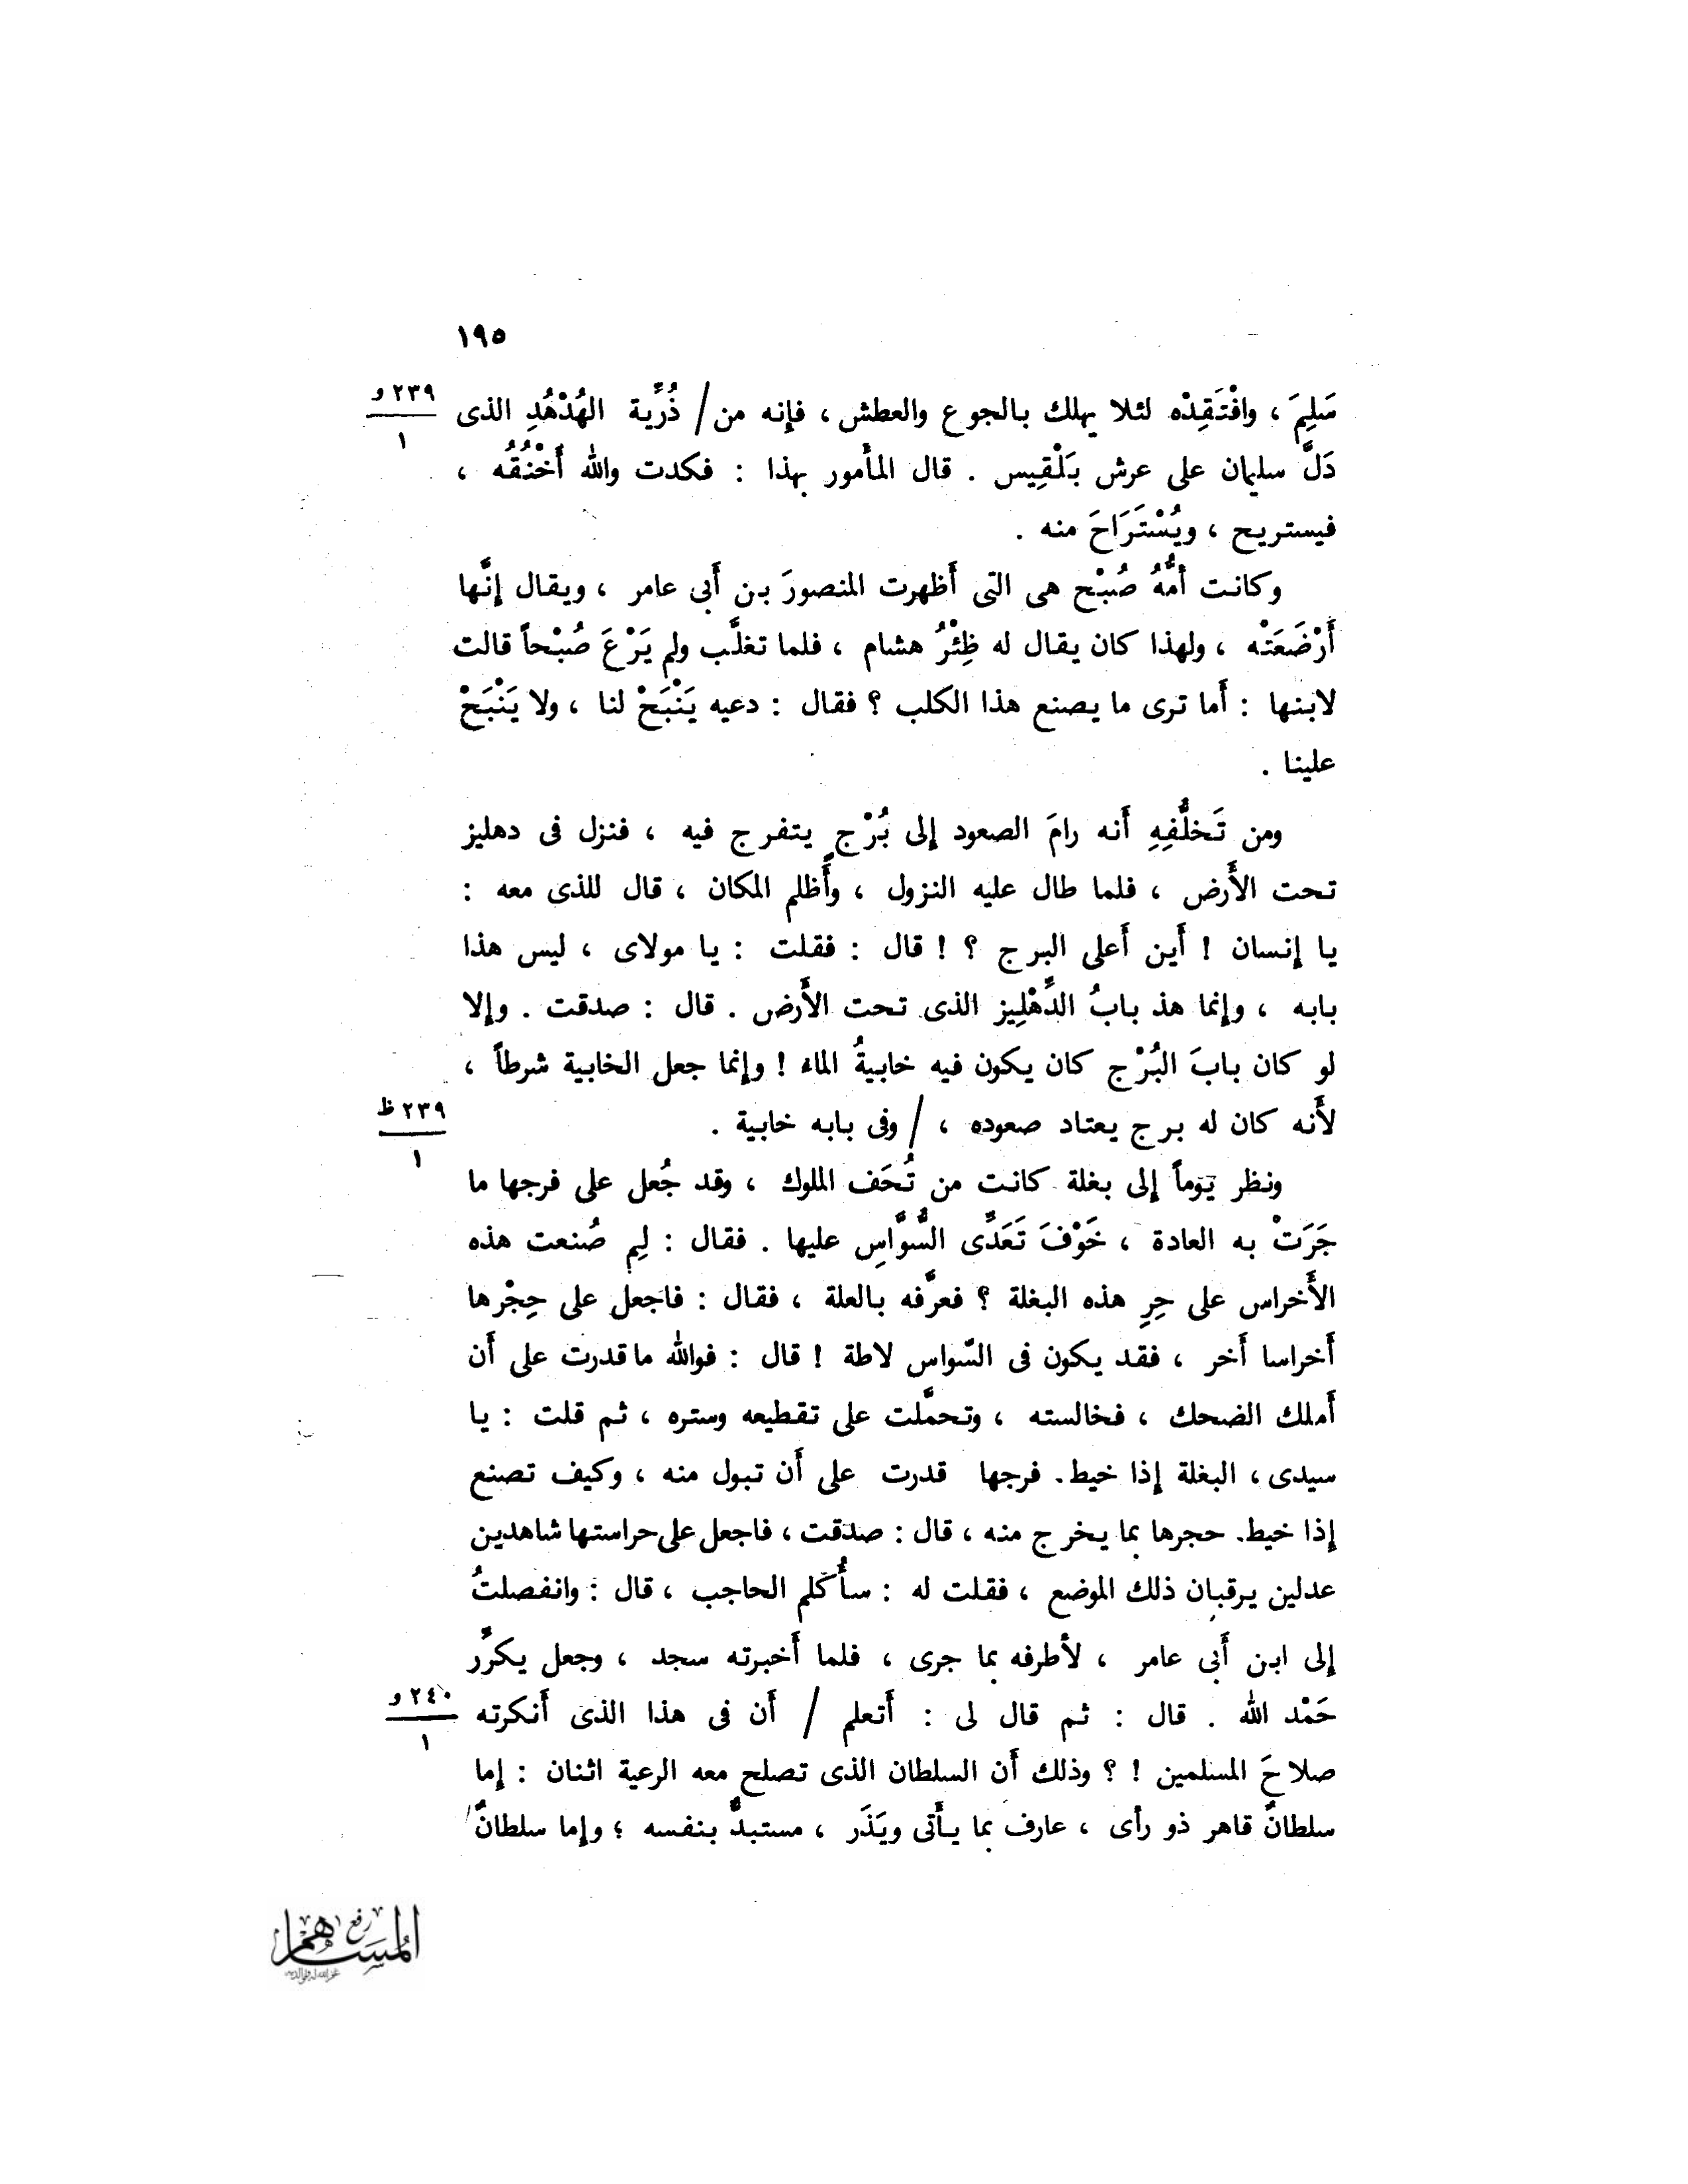 ١٩٥
سَلِمَ ، وافْتَقِدْه لئلا يهلك بالجوع والعطش ، فإنه من / ذُرِّية الهُدْهُدِ الذى
٢٣٩ و
١
دَلَّ سليمان على عرش بَلْقِيس . قال المأمور بهذا : فكدت والله أَخْنُقُه ،
فيستريح ، ويُسْتَرَاحَ منه .
وكانت أمُّهُ صُبْح هى التى أَظهرت المنصورَ بن أَبى عامر ، ويقال إنَّها
أَرْضَعَتْه ، ولهذا كان يقال له ظِئْرُ هشام ، فلما تغلَّب ولم يَرْعَ صُبْحاً قالت
لابنها : أَما ترى ما يصنع هذا الكلب ؟ فقال : دعيه يَنْبَحْ لنا ، ولا يَنْبَحْ
علينا .
ومن تَخلُّفِهِ أَنه رامَ الصعود إلى بُرْجٍ يتفرج فيه ، فنزل فى دهليز
تحت الأَرض ، فلما طال عليه النزول ، وأَظلم المكان ، قال للذى معه :
يا إنسان ! أَين أَعلى البرج ؟ ! قال : فقلت : يا مولاى ، ليس هذا
بابه ، وإنما هذ بابُ الدِّهْلِيز الذى تحت الأَرض . قال : صدقت . وإلا
لو كان بابَ البُرْج كان يكون فيه خابيةُ الماء ! وإنما جعل الخابية شرطاً ،
لأَنه كان له برج يعتاد صعوده ، / وفى بابه خابية .
٢٣٩ ظ
١
ونظر يَوماً إلى بغلة كانت من تُحَف الملوك ، وقد جُعل على فرجها ما
جَرَتْ به العادة ، خَوْفَ تَعَدِّى السُّوَّاسِ عليها . فقال : لِم صُنعت هذه
الأَخراس على حِرِ هذه البغلة ؟ فعرَّفه بالعلة ، فقال : فاجعل على حِجْرها
أَخراسا أَخر ، فقد يكون فى السّواس لاطة ! قال : فوالله ما قدرت على أَن
أَملك الضحك ، فخالسته ، وتحمَّلت على تقطيعه وستره ، ثم قلت : يا
سيدى ، البغلة إذا خيط. فرجها قدرت على أَن تبول منه ، وكيف تصنع
إذا خيط. حجرها بما يخرج منه ، قال : صدقت ، فاجعل على حراستها شاهدين
عدلين يرقبان ذلك الموضع ، فقلت له : سأُكلم الحاجب ، قال : وانفصلتُ
إلى ابن أَبى عامر ، لأطرفه بما جرى ، فلما أَخبرته سجد ، وجعل يكرِّر
حَمْد الله . قال : ثم قال لى : أَتعلم / أَن فى هذا الذى أَنكرته
٢٤٠ و
١
صلاحَ المسلمين ! ؟ وذلك أَن السلطان الذى تصلح معه الرعية اثنان : إما
سلطانٌ قاهر ذو رأى ، عارف بما يأَتى ويَذَر ، مستبدٌّ بنفسه ؛ وإما سلطانٌ
رفع
المساهم